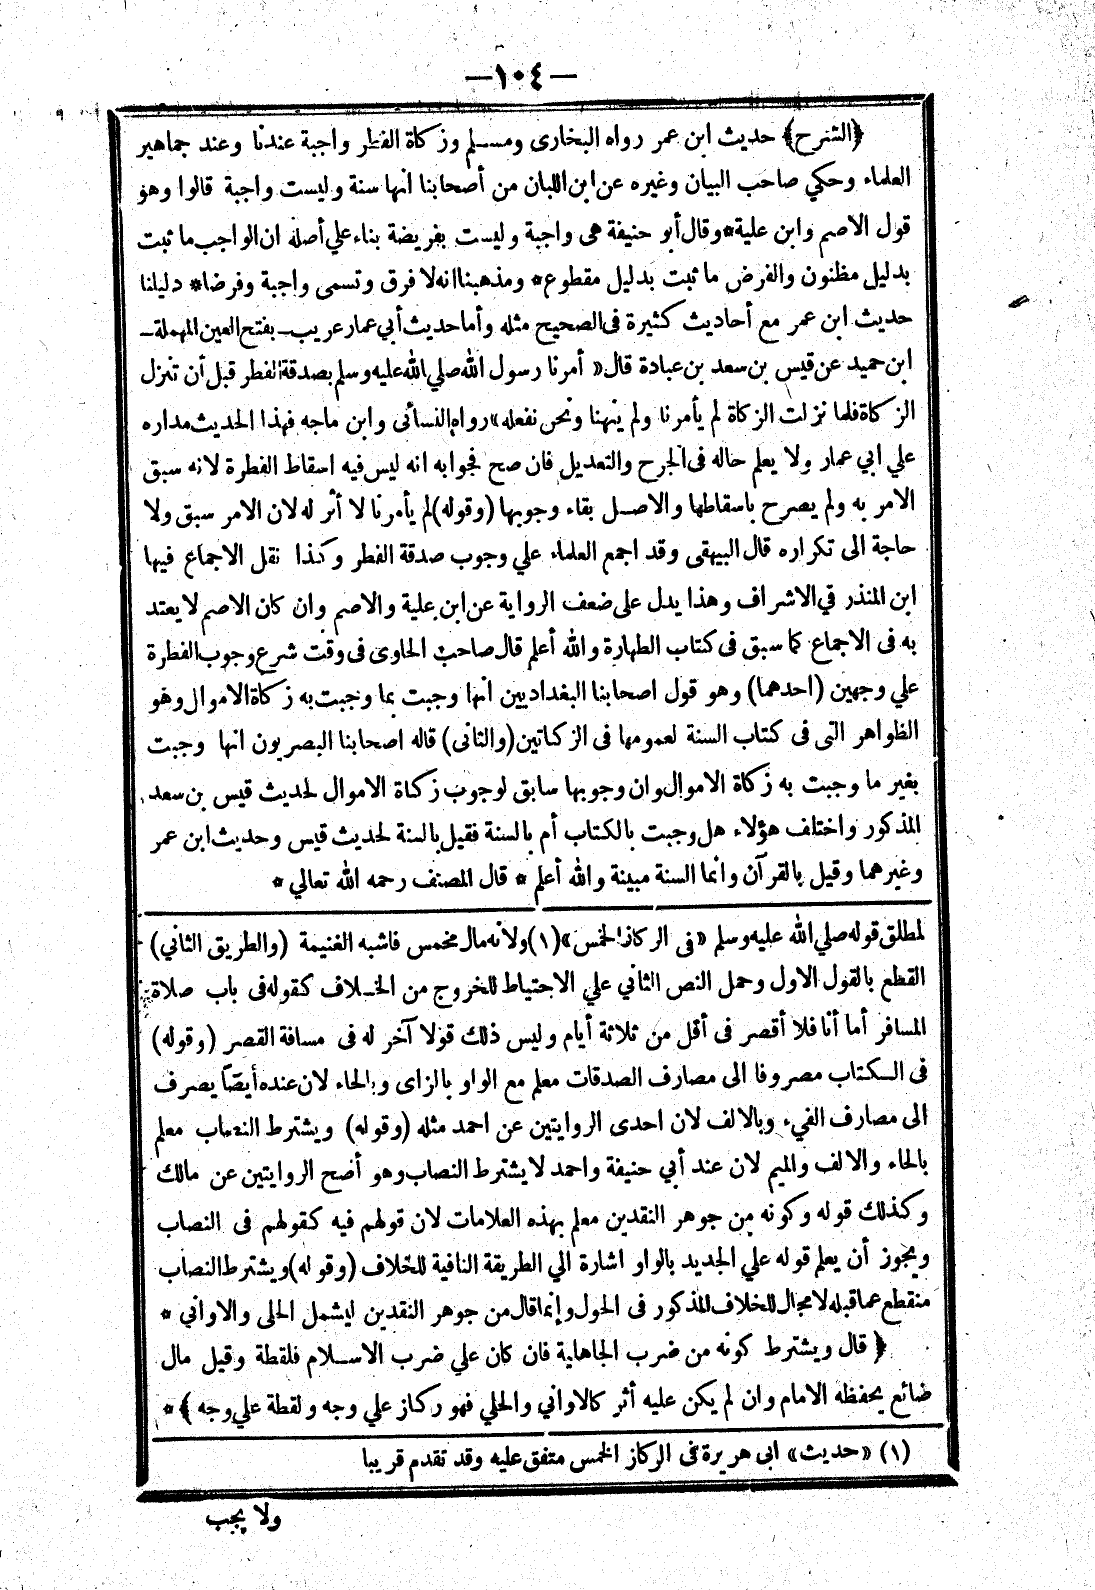 —١٠٤—
﴿الشرح﴾ حديث ابن عمر رواه البخارى ومسلم وزكاة الفطر واجبة عندنا وعند جماهير
العلماء وحكي صاحب البيان وغيره عن ابن اللبان من أصحابنا انها سنة وليست واجبة قالوا وهو
قول الاصم وابن علية * وقال أبو حنيفة هى واجبة وليست بفريضة بناء علي أصله ان الواجب ما ثبت
بدليل مظنون والفرض ما ثبت بدليل مقطوع * ومذهبنا انه لا فرق وتسمى واجبة وفرضا * دليلنا
حديث ابن عمر مع أحاديث كثيرة فى الصحيح مثله وأما حديث أبي عمار عريب ــ بفتح العين المهملة ــ
ابن حميد عن قيس بن سعد بن عبادة قال « أمرنا رسول الله صلي الله عليه وسلم بصدقة الفطر قبل أن تنزل
الزكاة فلما نزلت الزكاة لم يأمرنا ولم ينهنا ونحن نفعله » رواه النسائى وابن ماجه فهذا الحديث مداره
علي ابي عمار ولا يعلم حاله فى الجرح والتعديل فان صح فجوابه انه ليس فيه اسقاط الفطرة لانه سبق
الامر به ولم يصرح باسقاطها والاصل بقاء وجوبها (وقوله) لم يأمرنا لا أثر له لان الامر سبق ولا
حاجة الى تكراره قال البيهقى وقد اجمع العلماء علي وجوب صدقة الفطر وكذا نقل الاجماع فيها
ابن المنذر في الاشراف وهذا يدل على ضعف الرواية عن ابن علية والاصم وان كان الاصم لا يعتد
به فى الاجماع كما سبق فى كتاب الطهارة والله أعلم قال صاحب الحاوى فى وقت شرع وجوب الفطرة
علي وجهين (احدهما) وهو قول اصحابنا البغداديين انها وجبت بما وجبت به زكاة الاموال وهو
الظواهر التى فى كتاب السنة لعمومها فى الزكاتين (والثانى) قاله اصحابنا البصريون انها وجبت
بغير ما وجبت به زكاة الاموال وان وجوبها سابق لوجوب زكاة الاموال لحديث قيس بن سعد
المذكور واختلف هؤلاء هل وجبت بالكتاب أم بالسنة فقيل بالسنة لحديث قيس وحديث ابن عمر
وغيرهما وقيل بالقرآن وانما السنة مبينة والله أعلم * قال المصنف رحمه الله تعالي *
لمطلق قوله صلي الله عليه وسلم « فى الركاز الخمس » (١) ولأنه مال مخمس فاشبه الغنيمة (والطريق الثاني)
القطع بالقول الاول وحمل النص الثاني علي الاحتياط للخروج من الخلاف كقوله فى باب صلاة
المسافر أما أنا فلا أقصر فى أقل من ثلاثة أيام وليس ذلك قولا آخر له فى مسافة القصر (وقوله)
فى الكتاب مصروفا الى مصارف الصدقات معلم مع الواو بالزاى وبالحاء لان عنده أيضاً يصرف
الى مصارف الفيء وبالالف لان احدى الروايتين عن احمد مثله (وقوله) ويشترط النصاب معلم
بالحاء والالف والميم لان عند أبي حنيفة واحمد لا يشترط النصاب وهو أضح الروايتين عن مالك
وكذلك قوله وكونه من جوهر النقدين معلم بهذه العلامات لان قولهم فيه كقولهم فى النصاب
ويجوز أن يعلم قوله علي الجديد بالواو اشارة الي الطريقة النافية للخلاف (وقوله) ويشترط النصاب
منقطع عما قبله لا مجال للخلاف المذكور فى الحول وإنما قال من جوهر النقدين ليشمل الحلى والاواني *
﴿ قال ويشترط كونه من ضرب الجاهلية فان كان علي ضرب الاسلام فلقطة وقيل مال
ضائع يحفظه الامام وان لم يكن عليه أثر كالاواني والحلي فهو ركاز علي وجه ولقطة علي وجه ﴾ *
(١) « حديث » ابى هريرة فى الركاز الخمس متفق عليه وقد تقدم قريبا
ولا يجب